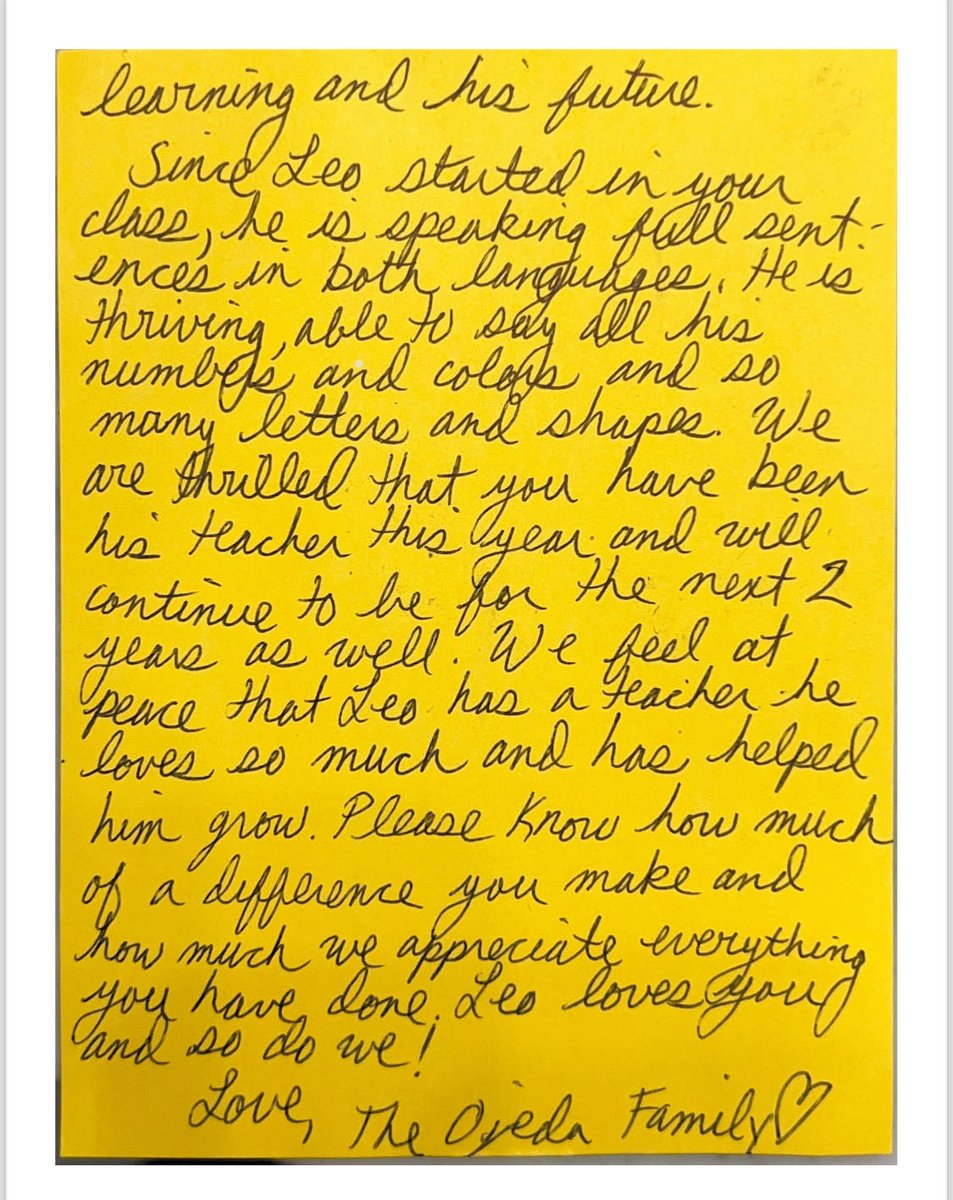 learning and his future.
Since Leo started in your
class, he is speaking full sent-
ences in both languages. He is
thriving, able to say all his
numbers and colors and so
many letters and shapes. We
are thrilled that you have been
his teacher this year and will
continue to be for the next 2
years as well. We feel at
peace that Leo has a teacher he
loves so much and has helped
him grow. Please Know how much
of a difference you make and
how much we appreciate everything
you have done. Leo loves you
and so do we!
Love, The Ojeda Family♡